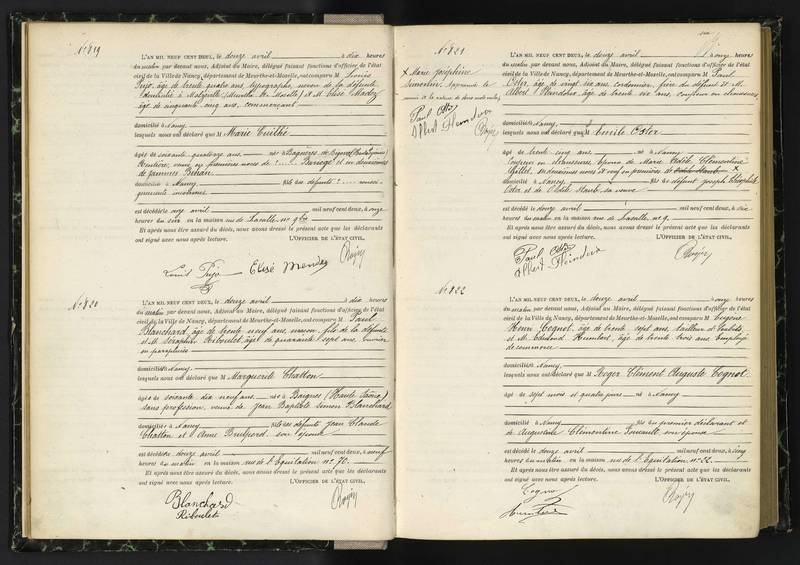 N° 819
L'AN MIL NEUF CENT DEUX, le douze avril à dix heures
du matin par devant nous, Adjoint au Maire, délégué faisant fonctions d'officier de l'état
civil de la Ville de Nancy, département de Meurthe-et-Moselle, ont comparu M Louis
Prijo, âgé de trente quatre ans, typographe, neveu de la défunte
domicilié à Malzéville (Meurthe et Moselle) et M. Elisé Mendez
âgé de cinquante cinq ans, commerçant
domicilié à Nancy
lesquels nous ont déclaré que M Marie Cuilhé
âgée de soixante quatorze ans, née à Bagnères de Bigorre (Hautes Pyrénées)
Rentière, veuve en premières noces de ?.... Barrège et en deuxièmes
de Jammes Béhan
domiciliée à Nancy fille des défunts ?....
est décédée le onze avril mil neuf cent deux, à onze
heures du soir en la maison rue de Laxelle, n° 9bis
Et après nous être assuré du décès, nous avons dressé le présent acte que les déclarants
ont signé avec nous après lecture. L'OFFICIER DE L'ÉTAT CIVIL,
Louis Prijo Elisé Mendez
N° 820
L'AN MIL NEUF CENT DEUX, le douze avril à dix heures
du matin par devant nous, Adjoint au Maire, délégué faisant fonctions d'officier de l'état
civil de la Ville de Nancy, département de Meurthe-et-Moselle, ont comparu M Paul
Blanchard, âgé de trente neuf ans, maçon, fils de la défunte
et M. Séraphin Riboulet, âgé de quarante sept ans, ouvrier
en
domiciliés à Nancy
lesquels nous ont déclaré que M Marguerite Chatton
âgée de soixante dix neuf ans née à Baignes (Haute Saône)
sans profession, veuve de Jean Baptiste Simon Blanchard
domiciliée à Nancy fille des défunts Jean Claude
Chatton et Anne son épouse
est décédée douze avril mil neuf cent deux, à neuf
heures du matin en la maison rue de l'Equitation n° 70
Et après nous être assuré du décès, nous avons dressé le présent acte que les déclarants
ont signé avec nous après lecture. L'OFFICIER DE L'ÉTAT CIVIL,
Blanchard
Riboulet
N° 821
x Marie Joséphine
Paul Oster
Albert Heindrix
L'AN MIL NEUF CENT DEUX, le douze avril à onze heures
du matin par devant nous, Adjoint au Maire, délégué faisant fonctions d'officier de l'état
civil de la Ville de Nancy, département de Meurthe-et-Moselle, ont comparu M Paul
Oster, âgé de vingt six ans, cordonnier, frère du défunt et M.
Albert Heindrix, âgé de trente six ans, coupeur en chaussures
domiciliés à Nancy
lesquels nous ont déclaré que M Emile Oster
âgé de trente cinq ans né à Nancy
coupeur en chaussures, époux de Marie Odile Clémentine
Gillet, en deuxièmes noces et veuf en premières de
domicilié à Nancy fils de défunt Joseph Théophile
Oster et de Odile Staub, sa veuve
est décédé le onze avril mil neuf cent deux, à six
heures du matin en la maison rue de Laxelle n° 9
Et après nous être assuré du décès, nous avons dressé le présent acte que les déclarants
ont signé avec nous après lecture. L'OFFICIER DE L'ÉTAT CIVIL,
Paul Oster
Albert Heindrix
N° 822
L'AN MIL NEUF CENT DEUX, le douze avril à onze heures
du matin par devant nous, Adjoint au Maire, délégué faisant fonctions d'officier de l'état
civil de la Ville de Nancy, département de Meurthe-et-Moselle, ont comparu M Eugène
Henri Cognot, âgé de trente sept ans, tailleur d'habits
et M. Edmond Humbert, âgé de trente trois ans, employé
de commerce
domiciliés à Nancy
lesquels nous ont déclaré que M Roger Clément Auguste Cognot
âgé de sept mois et quatre jours né à Nancy
domicilié à Nancy fils du premier déclarant et
de Augustine Clémentine Foucault son épouse
est décédé le douze avril mil neuf cent deux, à cinq
heures du matin en la maison rue de l'Equitation n° 22
Et après nous être assuré du décès, nous avons dressé le présent acte que les déclarants
ont signé avec nous après lecture. L'OFFICIER DE L'ÉTAT CIVIL,
Cognot
Humbert